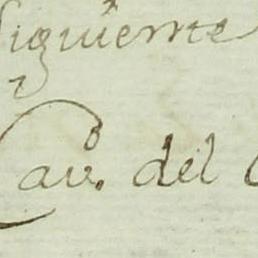 Siguiente
Cav.º del